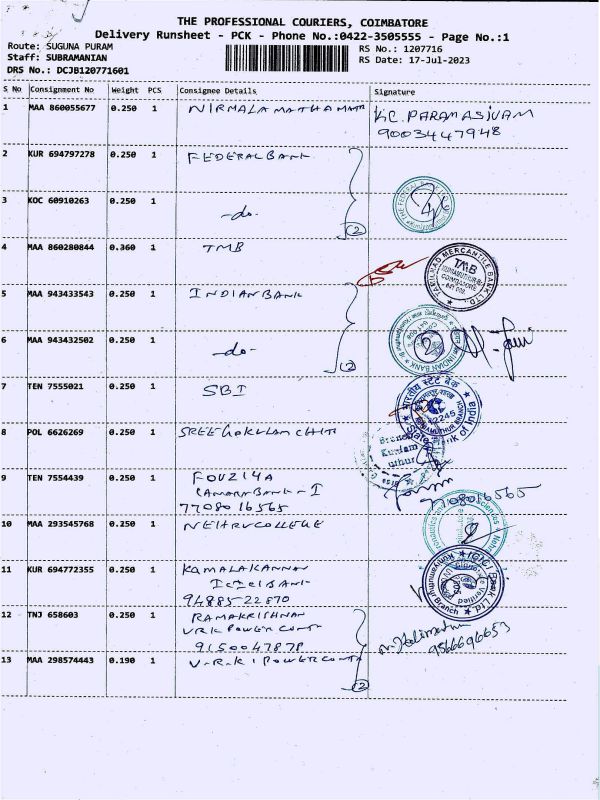 THE PROFESSIONAL COURIERS, COIMBATORE
Delivery Runsheet - PCK - Phone No.:0422-3505555 - Page No.:1
Route: SUGUNA PURAM
RS No.: 1207716
Staff: SUBRAMANIAN
RS Date: 17-Jul-2023
DRS No.: DCJB120771601
S No Consignment No Weight PCS Consignee Details Signature
1 MAA 860055677 0.250 1 NIRMALA MATHA MATR KC. PARAMASIVAM
9003447948
2 KUR 694797278 0.250 1 FEDERAL BANK
3 KOC 60910263 0.250 1 -do- (2)
4 MAA 860280844 0.360 1 TMB
TAMILNAD MERCANTILE BANK LTD.
TMB
COIMBATORE
5 MAA 943433543 0.250 1 INDIAN BANK
6 MAA 943432502 0.250 1 -do- (2)
INDIAN BANK
7 TEN 7555021 0.250 1 SBI
भारतीय स्टेट बैंक
State Bank of India
8 POL 6626269 0.250 1 SREE GOKULAM CHIT
Branch
9 TEN 7554439 0.250 1 FOUZIYA
CANARA BANK - I
7708016565
7708016565
10 MAA 293545768 0.250 1 NEHRU COLLEGE
11 KUR 694772355 0.250 1 KAMALAKANNAN
ICICI BANK
94885-22870
ICICI Bank Ltd
Branch
12 TNJ 658603 0.250 1 RAMAKRISHNAN
VRK POWER CONT
9150047878
9566696653
13 MAA 298574443 0.190 1 V.R.K. POWER CONT
(2)